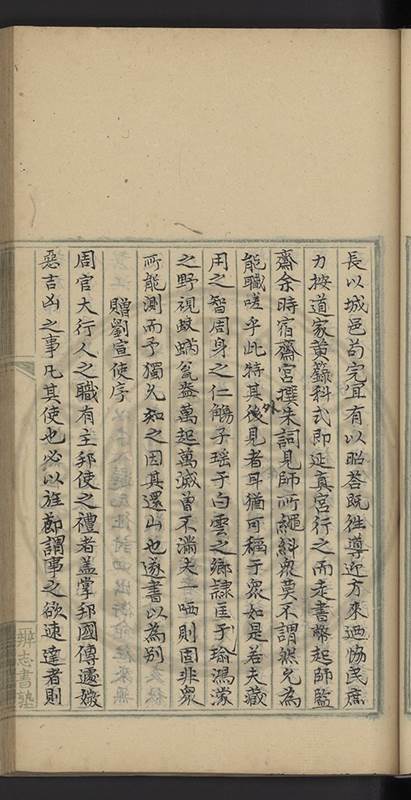 長以城邑苟完宜有以昭荅既徃導近方來迺恊民庶
力按道家黄籙科式即延真宮行之而走書幣起師監
齋余時宿齋宮撰朱詞見師所繩糾衆莫不謂然允為
能職嗟乎此特其後外見者耳猶可稱于衆如是若夫藏
用之智周身之仁觴子瑶于白雲之鄉隷匡于瑜鴻濛
之野視蚊蝸瓮盎萬起萬滅曾不滿夫一哂則固非衆
所能測而予獨允知之因其還山也遂書以為别
贈劉宣使序
周官大行人之職有主邦使之禮者盖掌邦國傳遽媺
惡吉凶之事凡其使也必以旌節謂事之欲速達者則
辨志書塾